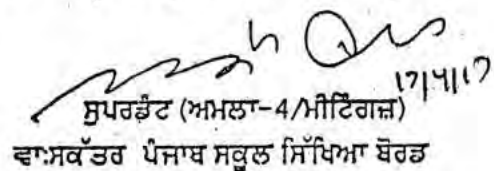 17/4/17
ਸੁਪਰਡੰਟ (ਅਮਲਾ-4/ਮੀਟਿੰਗਜ਼)
ਵਾ:ਸਕੱਤਰ ਪੰਜਾਬ ਸਕੂਲ ਸਿੱਖਿਆ ਬੋਰਡ